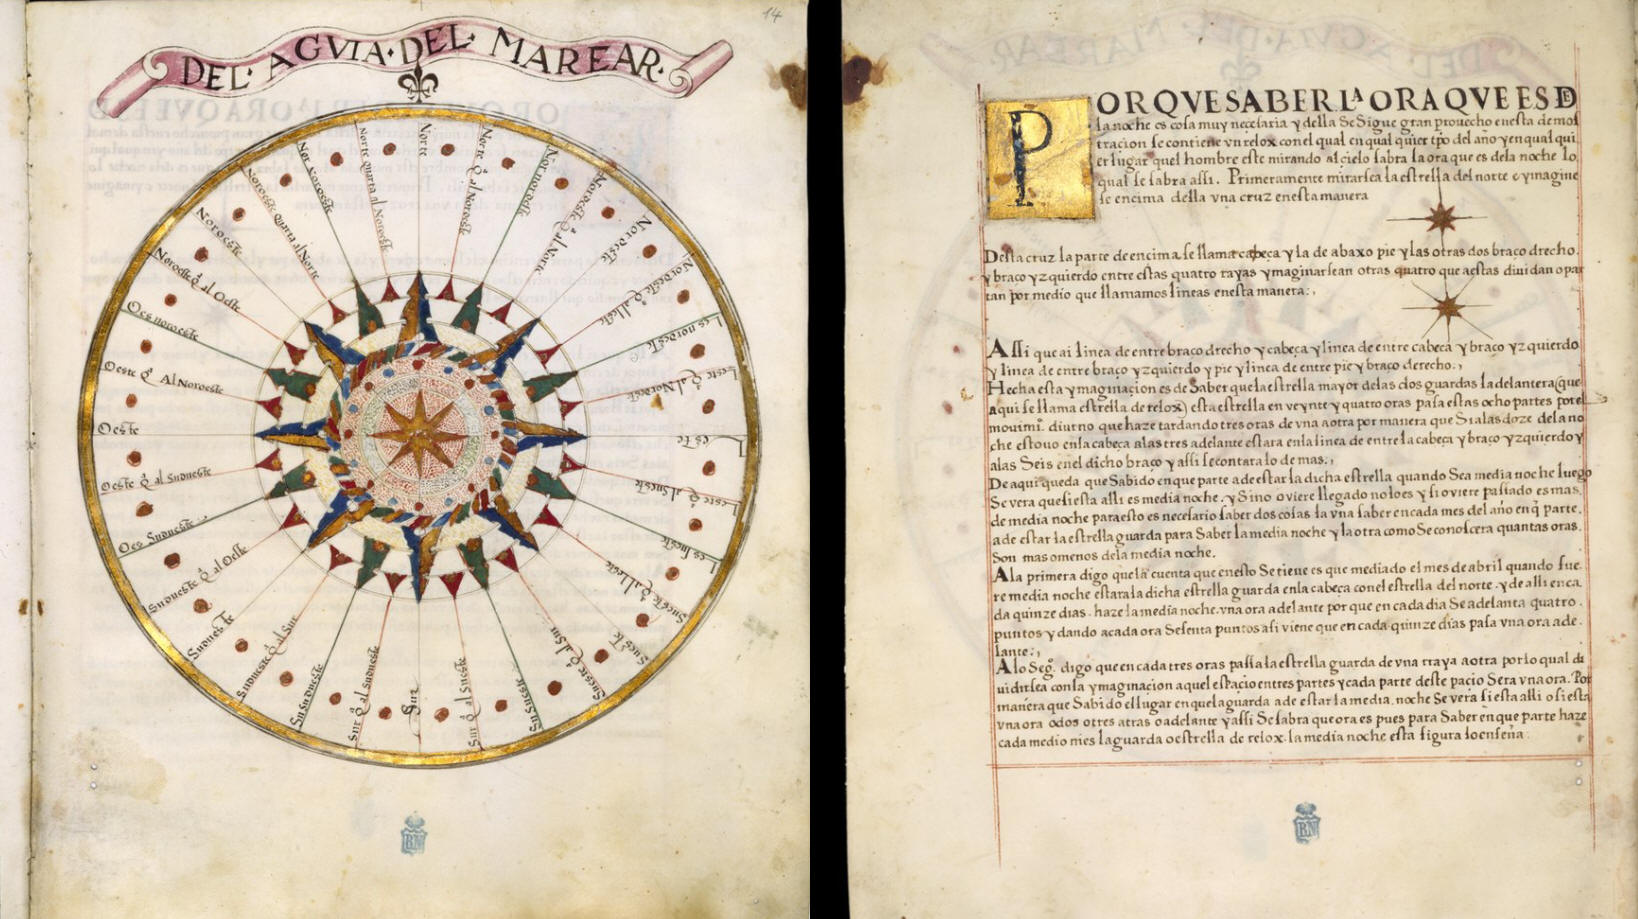 14
DEL· AGVIA·DEL· MAREAR·
Norte
Norte q.ª al Nordeste
Nornordeste
Nordeste q.ª al Norte
Nordeste
Nordeste q.ª al leste
Les nordeste
Leste q.ª al Nordeste
Leste
Leste q.ª al Sueste
Les Sueste
Sueste q.ª al leste
Sueste
Sueste q.ª al Sur
Su Sueste
Sur q.ª al Sueste
Sur
Sur q.ª al Sudueste
Su Sudueste
Sudueste q.ª al Sur
Sudueste
Sudueste q.ª al Oeste
Oes Sudueste
Oeste q.ª al Sudueste
Oeste
Oeste q.ª Al Noroeste
Oes noroeste
Noroeste q.ª al Oeste
Noroeste
Noroeste quarta al Norte
Nor noroeste
Norte quarta al Noroeste
BN
PORQVE SABER Lᴬ ORA QVE ES D
la noche es cosa muy necesaria y della Se Sigue gran prouecho enesta demos
tracion se contiene vn relox conel qual en qual quier tp̃o del año y en qual qui
er lugar quel hombre este mirando al cielo sabra la ora que es dela noche lo
qual se sabra assi. Primeramente mirarsea la estrella del norte e ymagine
se encima della vna cruz enesta manera
Desta cruz la parte de encima se llama cabeça y la de abaxo pie y las otras dos braço drecho.
y braço yzquierdo entre estas quatro rayas ymaginarsean otras quatro que aestas diuidan o par
tan por medio que llamamos lineas enesta manera:,
Assi que ai linea de entre braço drecho y cabeça y linea de entre cabeça y braço yzquierdo
y linea de entre braço yzquierdo y pie y linea de entre pie y braço derecho:,
Hecha esta ymaginacion es de Saber quela estrella mayor delas dos guardas la delantera (que
aqui se llama estrella de relox) esta estrella en veynte y quatro oras pasa estas ocho partes por el
mouimi.º diurno que haze tardando tres oras de vna aotra por manera que Si alas doze dela no
che estouo enla cabeça alas tres adelante estara enla linea de entre la cabeça y braço yzquierdo y
alas Seis enel dicho braço y assi se contara lo de mas:,
De aqui queda que Sabido en que parte a de estar la dicha estrella quando Sea media noche luego
Se vera que si esta alli es media noche. y Si no oviere llegado no lo es y si oviere pasado es mas.
de media noche para esto es necesario saber dos cosas la vna saber en cada mes del año en q̃ parte.
a de estar la estrella guarda para Saber la media noche y la otra como Se conoscera quantas oras.
Son mas o menos dela media noche.
Ala primera digo quela cuenta que enesto Se tiene es que mediado el mes de abril quando fue.
re media noche estara la dicha estrella guarda enla cabeça conel estrella del norte. y de alli en ca.
da quinze dias. haze la media noche. vna ora adelante por que en cada dia Se adelanta quatro.
puntos y dando acada ora Sesenta puntos asi viene que en cada quinze dias pasa vna ora ade.
lante:,
Alo Seg.º digo que en cada tres oras passa la estrella guarda de vna raya aotra por lo qual di
uidirsea con la ymaginacion aquel espacio en tres partes y cada parte deste pacio Sera vna ora. Por
manera que Sabido el lugar en que la guarda a de estar la media. noche Se vera si esta alli o si esta
vna ora o dos o tres atras o adelante y assi Se sabra que ora es pues para Saber en que parte haze
cada medio mes la guarda o estrella de relox. la media noche esta figura lo enseña.
BN